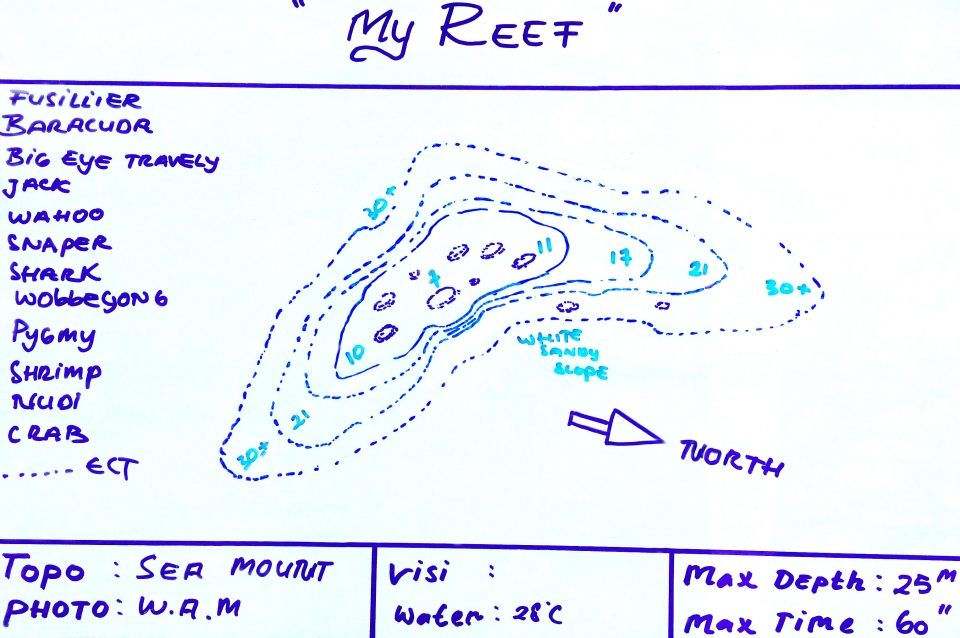 "My REEF"
FUSILLIER
BARACUDA
BIG EYE TRAVELY
JACK
WAHOO
SNAPER
SHARK
WOBBEGONG
PYGMY
SHRIMP
NUDI
CRAB
....... ECT
30+
11
17
21
30+
7
10
21
30+
WHITE
SANDY
SLOPE
NORTH
TOPO : SEA MOUNT
PHOTO: W.A.M
VISI :
Water: 28°C
Max DEPTH: 25M
Max TIME : 60"